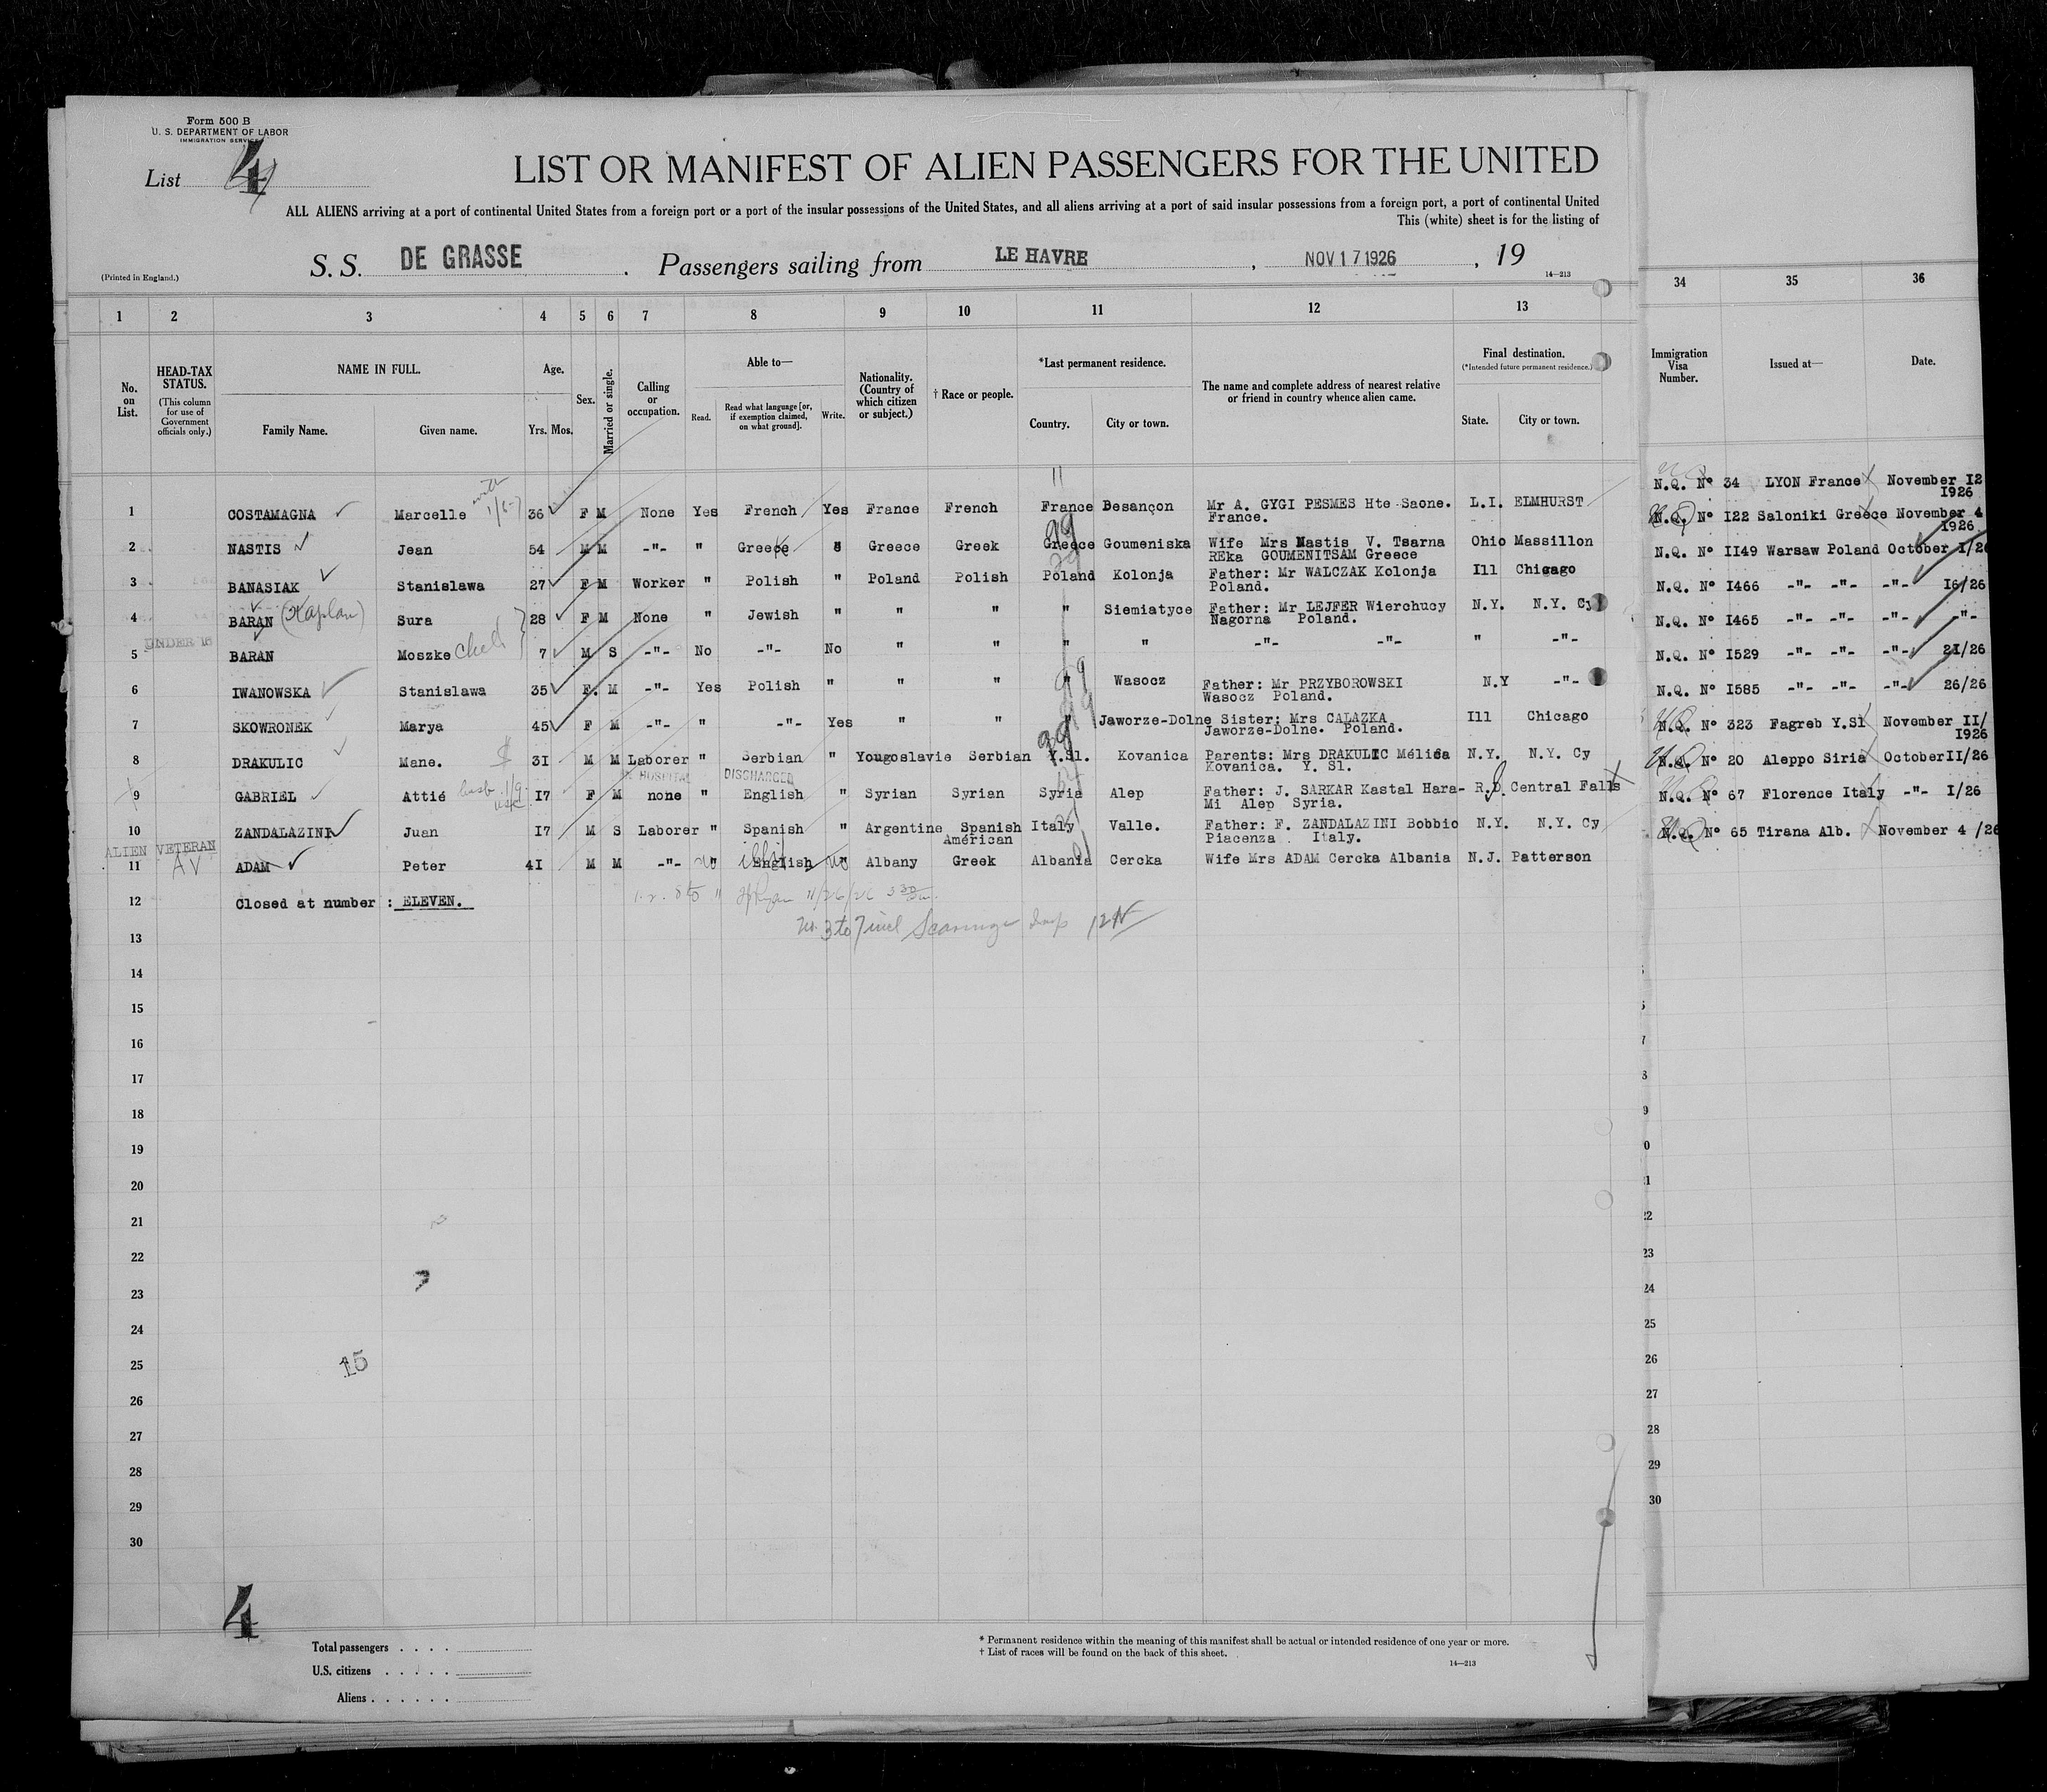 Form 500 B
U. S. DEPARTMENT OF LABOR
IMMIGRATION SERVICE
List 4
LIST OR MANIFEST OF ALIEN PASSENGERS FOR THE UNITED
ALL ALIENS arriving at a port of continental United States from a foreign port or a port of the insular possessions of the United States, and all aliens arriving at a port of said insular possessions from a foreign port, a port of continental United
This (white) sheet is for the listing of
(Printed in England.)
S. S. DE GRASSE . Passengers sailing from LE HAVRE , NOV 17 1926 , 19
14—213
1 2 3 4 5 6 7 8 9 10 11 12 13 34 35 36
No. on List.
HEAD-TAX STATUS.
(This column for use of Government officials only.)
NAME IN FULL.
Family Name. Given name.
Age.
Yrs. Mos.
Sex.
Married or single.
Calling or occupation.
Able to—
Read. Read what language [or, if exemption claimed, on what ground]. Write.
Nationality. (Country of which citizen or subject.)
† Race or people.
*Last permanent residence.
Country. City or town.
The name and complete address of nearest relative or friend in country whence alien came.
Final destination.
(*Intended future permanent residence.)
State. City or town.
Immigration Visa Number.
Issued at—
Date.
11
1 COSTAMAGNA Marcelle 36 F M None Yes French Yes France French France Besançon Mr A. GYGI PESMES Hte Saone. France. L.I. ELMHURST
N.Q. Nº 34 LYON France November I2 1926
2 NASTIS Jean 54 M M -"- " Greece " Greece Greek Greece Goumeniska Wife Mrs Nastis V. Tsarna REka GOUMENITSAM Greece Ohio Massillon
N.Q. Nº I22 Saloniki Greece November 4 1926
3 BANASIAK Stanislawa 27 F M Worker " Polish " Poland Polish Poland Kolonja Father: Mr WALCZAK Kolonja Poland. Ill Chicago
N.Q. Nº II49 Warsaw Poland October I/26
4 BARAN (Kaplan) Sura 28 F M None " Jewish " " " " Siemiatyce Father: Mr LEJFER Wierchucy Nagorna Poland. N.Y. N.Y. Cy
N.Q. Nº I466 -"- -"- -"- I6/26
UNDER 16
5 BARAN Moszke 7 M S -"- No -"- No " " " " -"- -"- " -"-
N.Q. Nº I465 -"- -"- -"- -"-
6 IWANOWSKA Stanislawa 35 F. M -"- Yes Polish " " " " Wasocz Father: Mr PRZYBOROWSKI Wasocz Poland. N.Y -"-
N.Q. Nº I529 -"- -"- -"- 2I/26
7 SKOWRONEK Marya 45 F M -"- " -"- Yes " " " Jaworze-Dolne Sister: Mrs CALAZKA Jaworze-Dolne. Poland. Ill Chicago
N.Q. Nº I585 -"- -"- -"- 26/26
8 DRAKULIC Mane. 3I M M Laborer " Serbian " Yougoslavie Serbian Y.Sl. Kovanica Parents: Mrs DRAKULIC Mélica Kovanica. Y. Sl. N.Y. N.Y. Cy
N.Q. Nº 323 Fagreb Y.Sl November II/ 1926
IN HOSPITAL DISCHARGED
9 GABRIEL Attié I7 F M none " English " Syrian Syrian Syria Alep Father: J. SARKAR Kastal Hara-Mi Alep Syria. R.I. Central Falls
N.Q. Nº 20 Aleppo Siria OctoberII/26
10 ZANDALAZINI Juan I7 M S Laborer " Spanish " Argentine Spanish American Italy Valle. Father: F. ZANDALAZINI Bobbio Piacenza . Italy. N.Y. N.Y. Cy
N.Q. Nº 67 Florence Italy -"- I/26
ALIEN VETERAN
AV
11 ADAM Peter 4I M M -"- " English " Albany Greek Albania Cercka Wife Mrs ADAM Cercka Albania N.J. Patterson
N.Q. Nº 65 Tirana Alb. November 4 /26
12 Closed at number : ELEVEN.
11/26/26
3 to 7 incl
13
14
15
16
17
18
19
20
21
22
23
24
25 15
26
27
28
29
30
4
Total passengers . . . .
U.S. citizens . . . . .
Aliens . . . . . .
* Permanent residence within the meaning of this manifest shall be actual or intended residence of one year or more.
† List of races will be found on the back of this sheet.
14—213